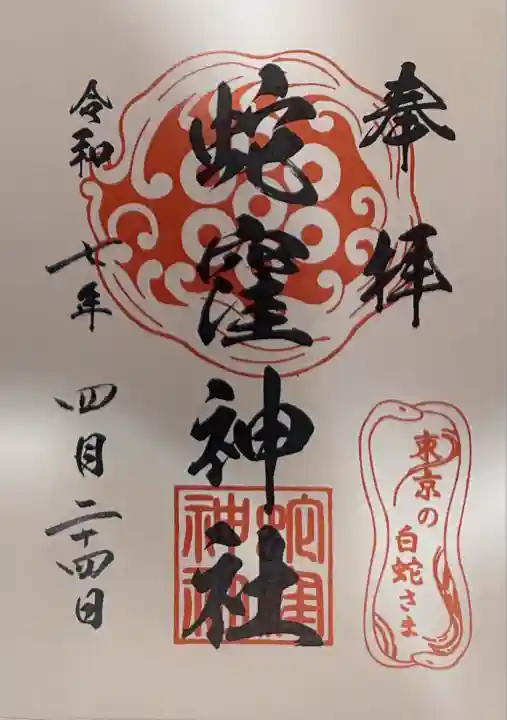 奉拝
蛇窪神社
蛇窪神社
令和七年四月二十四日
東京の
白蛇さま